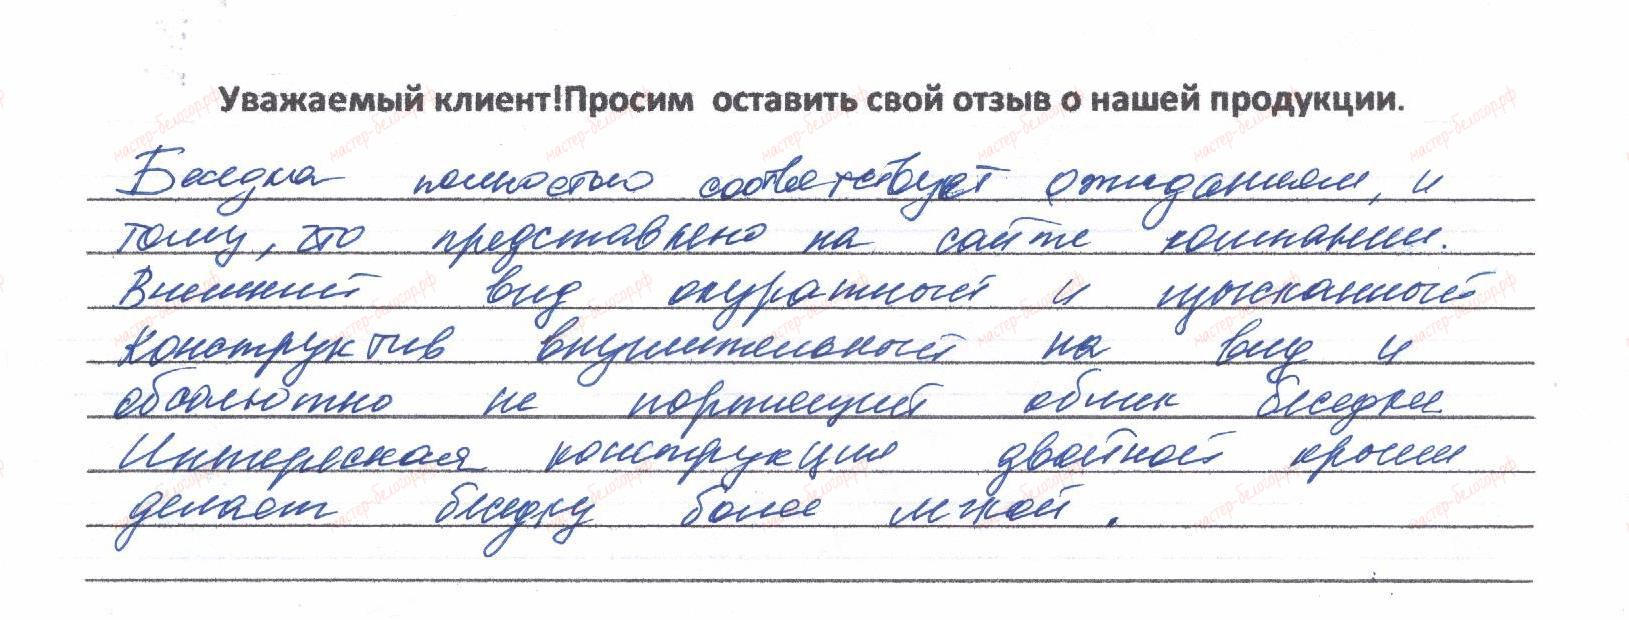 Уважаемый клиент!Просим оставить свой отзыв о нашей продукции.
Беседка полностью соответствует ожиданиям, и
тому, что представлено на сайте компании.
Внешний вид акуратный и изысканный
Конструктив внушительный на вид и
абсолютно не портящий облик беседки
Интересная конструкция двойной крыши
делает беседку более легкой.
мастер-белогор.рф